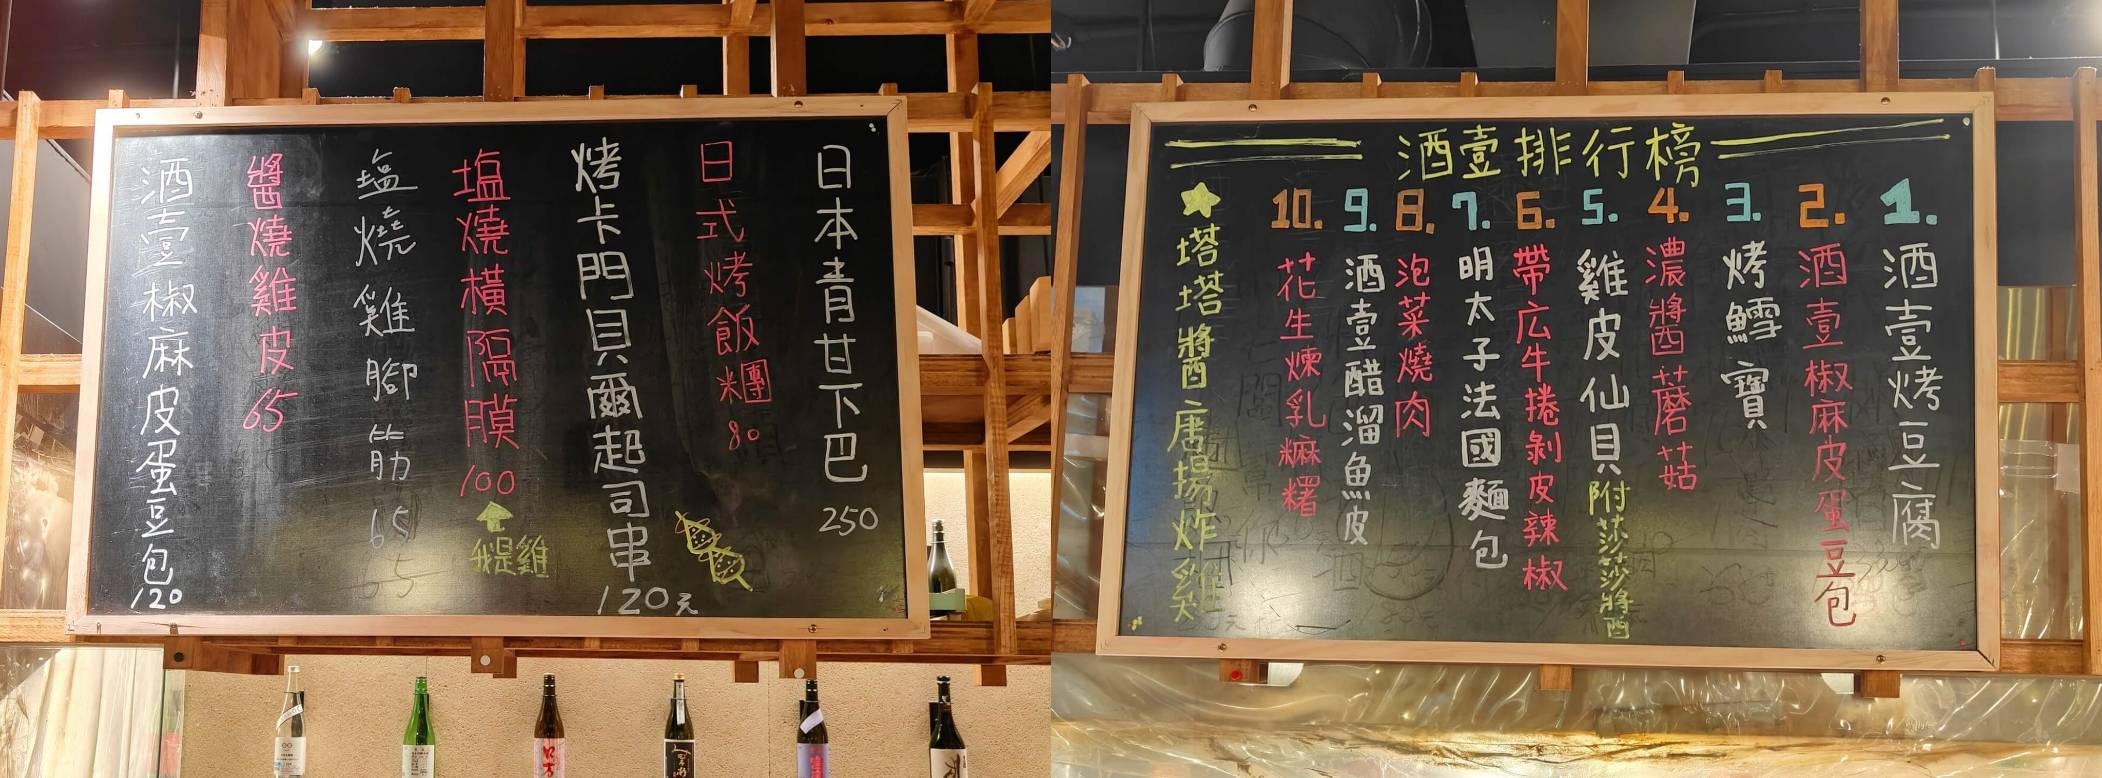 日本青甘下巴 250
日式烤飯糰 80
烤卡門貝爾起司串 120元
塩燒橫隔膜 100
我是雞
塩燒雞腳筋 65
醬燒雞皮 65
酒壹椒麻皮蛋豆包 120
酒壹排行榜
1. 酒壹烤豆腐
2. 酒壹椒麻皮蛋豆包
3. 烤鱈寶
4. 濃醬蘑菇
5. 雞皮仙貝附莎莎醬
6. 帶広牛捲剝皮辣椒
7. 明太子法國麵包
8. 泡菜燒肉
9. 酒壹醋溜魚皮
10. 花生煉乳麻糬
塔塔醬唐揚炸雞